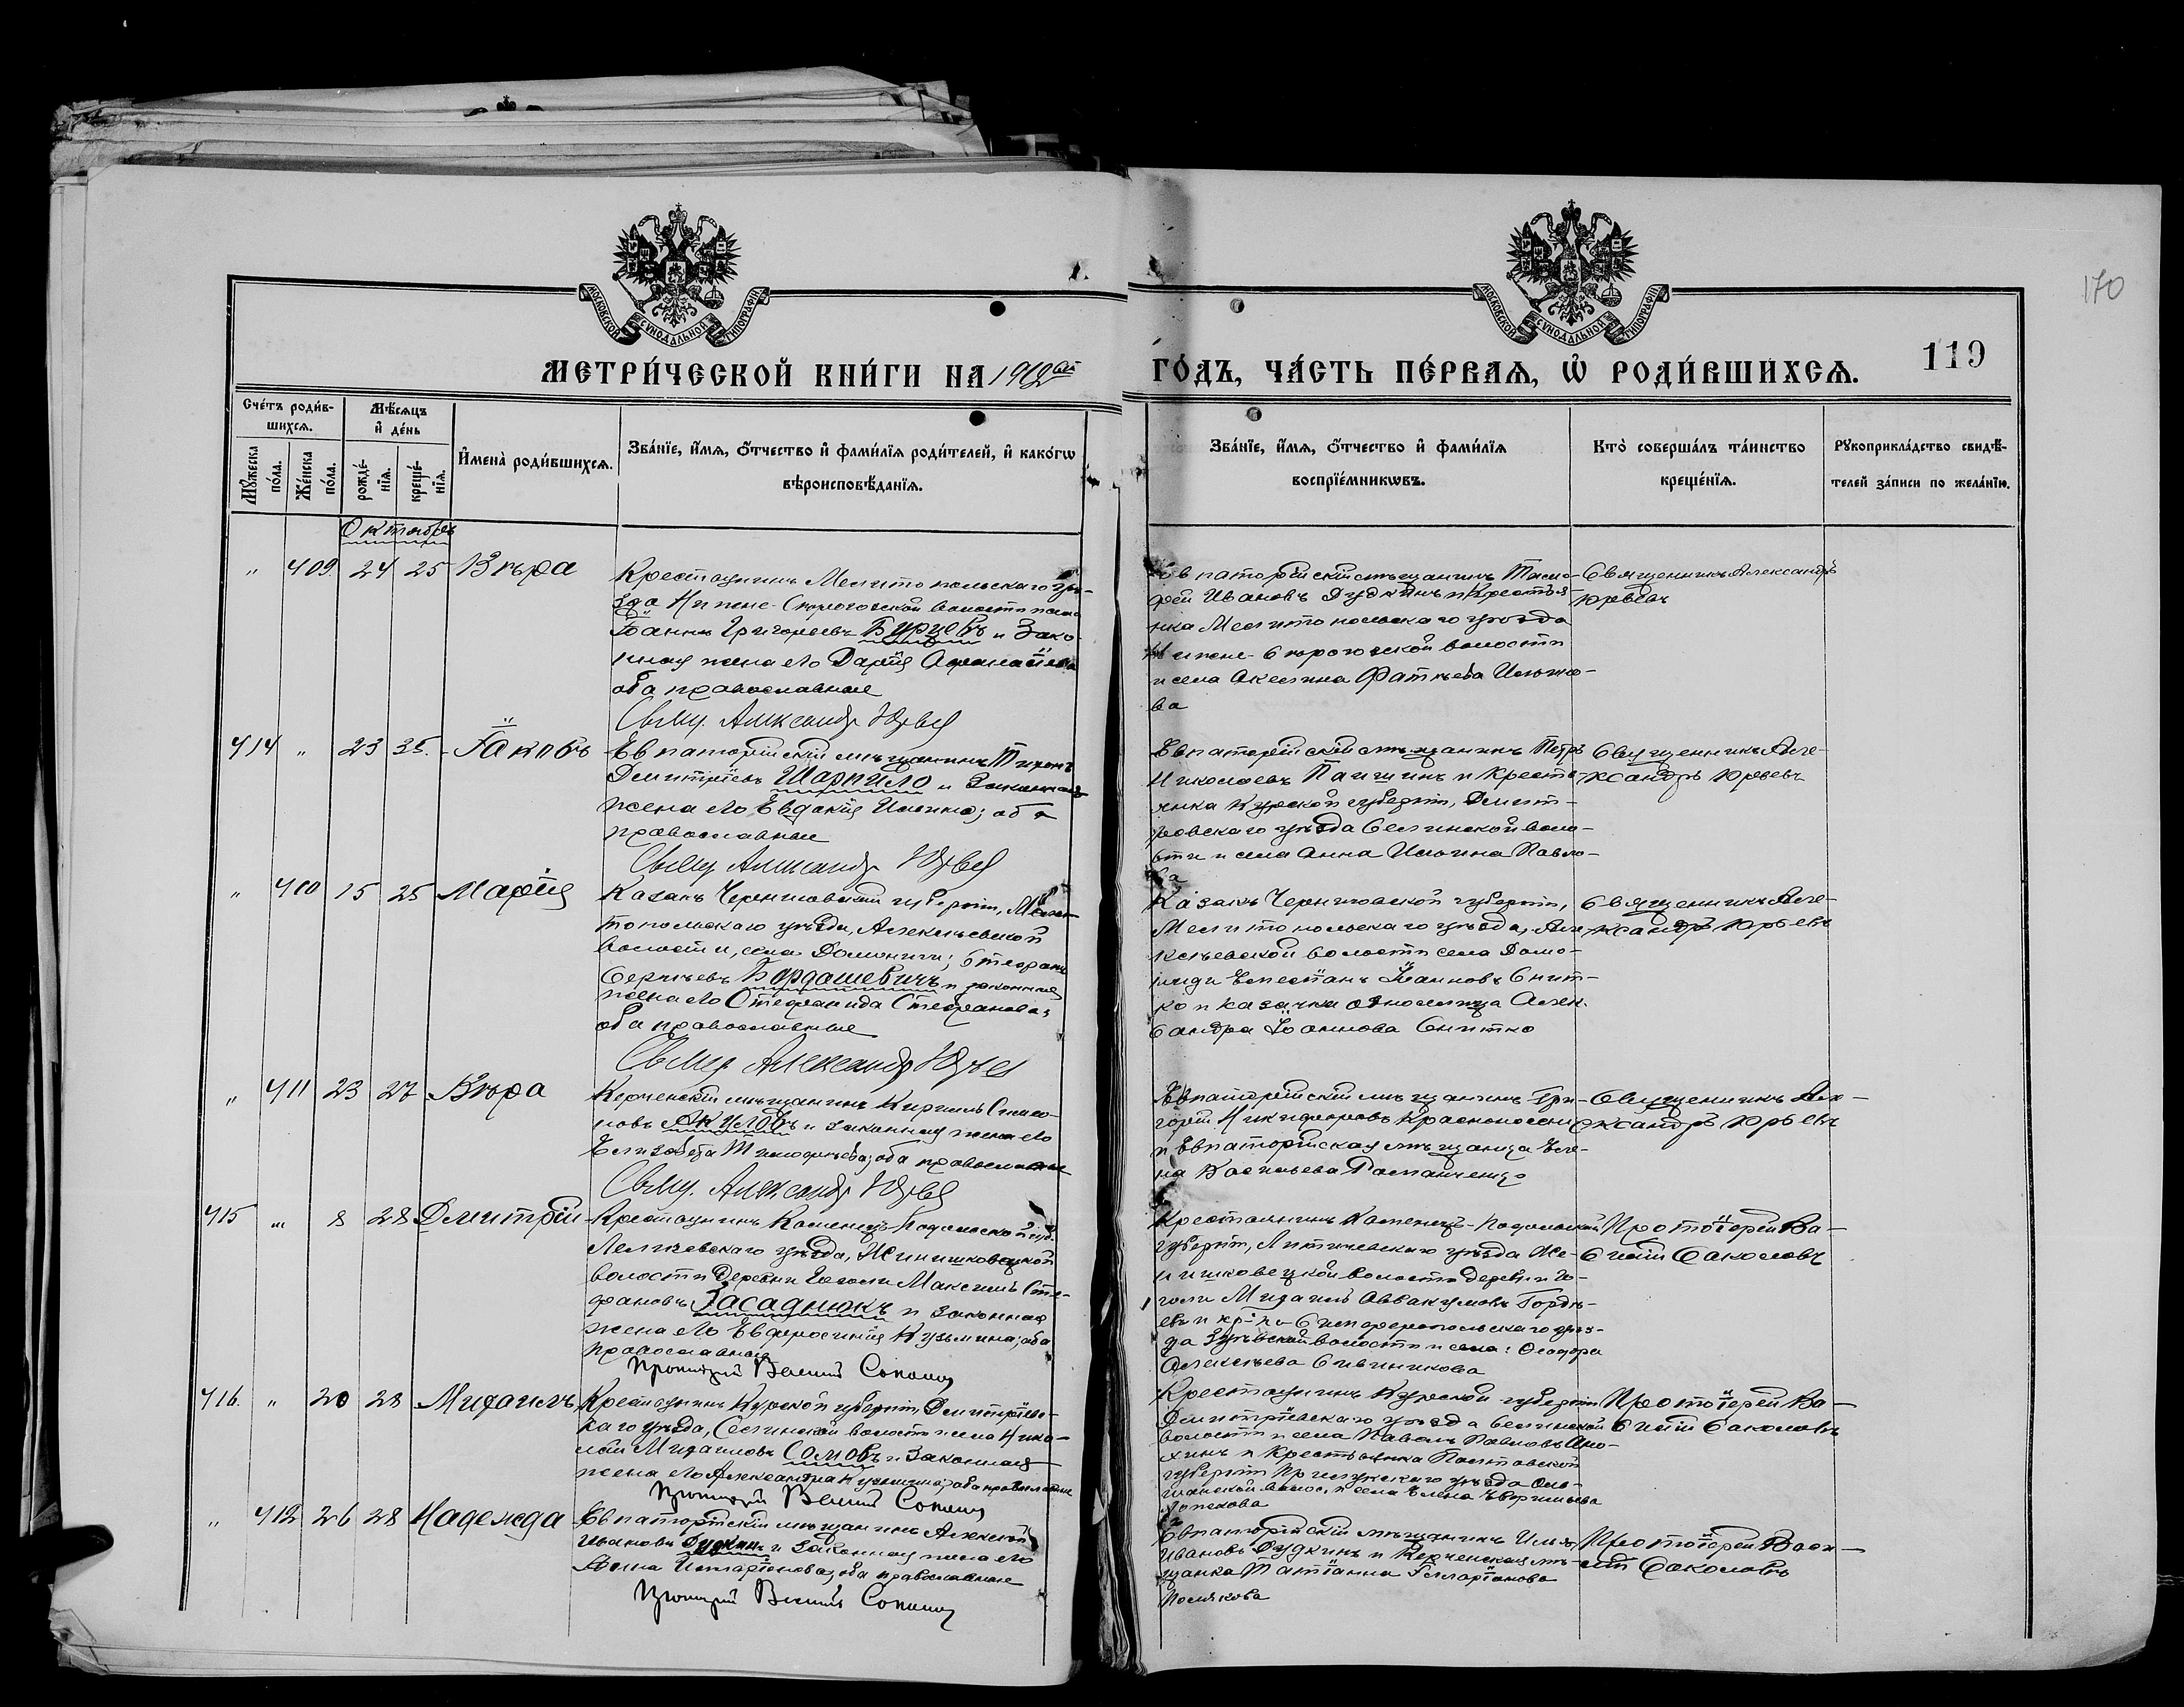 МОСКОВСКОЙ СѴНОДАЛЬНОЙ ТИПОГРАФІИ
МОСКОВСКОЙ СѴНОДАЛЬНОЙ ТИПОГРАФІИ
170
МЕТРИ́ЧЕСКОЙ КНИ́ГИ НА 1912ый
ГО́ДЪ, ЧА́СТЬ ПЕ́РВАѦ, Ѡ҆ РОДИ́ВШИХСѦ.
119
Сче́тъ роди́в-
шихсѧ.
Мꙋ́жеска
по́ла.
Же́нска
по́ла.
Мѣ́сѧцъ
и҆ де́нь
рожде́-
нїѧ.
креще́-
нїѧ.
И҆мена̀ роди́вшихсѧ.
Зва́нїе, и҆́мѧ, ѻ҆́тчество и҆ фами́лїѧ роди́телей, и҆ како́гѡ
вѣроисповѣ́данїѧ.
Зва́нїе, и҆́мѧ, ѻ҆́тчество и҆ фами́лїѧ
воспрїе́мникѡвъ.
Кто̀ соверша́лъ та́инство
креще́нїѧ.
Рꙋкоприкла́дство свидѣ́-
телей за́писи по жела́нїю.
Октябрь
" 409. 24 25 Вѣра
Крестьянинъ Мелитопольскаго уѣ-
зда Нижне-Сѣрогозской волости и села
Іоаннъ Григорьевъ Бурцевъ и зако-
нная жена его Дарія Афанасіева
оба православные
Свящ. Александръ Юрьевъ
Евпаторійскій мѣщанинъ Тимо-
фей Ивановъ Дудкинъ и крестья-
нка Мелитопольскаго уѣзда
Нижне-Сѣрогозской волости
и села Акелина Фатѣева Ильино-
ва
Священникъ Александръ
Юрьевъ
414 " 23 25. Іаковъ
Евпаторійскій мѣщанинъ Тихонъ
Димитріевъ Шарпило и законная
жена его Евдокія Ильина; оба
православные
Свящ Александръ Юрьевъ
Евпаторійскій мѣщанинъ Петръ
Николаевъ Паишинъ и кресть-
янка Курской губерніи, Дмит-
ровскаго уѣзда Селинской воло-
сти и села Анна Ильина Павло-
ва
Священникъ Але-
ксандръ Юрьевъ
" 410 15 25 Марія
Казакъ Черниговской губерніи, Мели-
топольскаго уѣзда, Алексѣевской
волости, села Домошичи; Стефанъ
Сергѣевъ Бардашевичъ и законная
жена его Стефанида Стефанова;
оба православные
Свящ. Александръ Юрьевъ
Казакъ Черниговской губерніи,
Мелитопольскаго уѣзда, Але-
ксѣевской волости села
Іоанновъ Снит-
ко и казачка односелица Алек-
сандра Іоаннова Снитко
Священникъ Але-
ксандръ Юрьевъ
" 411 23 27 Вѣра
Керченскій мѣщанинъ Кириллъ Симо-
новъ Акуловъ и законная жена его
Елизавета Тимофѣева; оба православные
Свящ. Александръ Юрьевъ
Евпаторійскій мѣщанинъ Гри-
горій Никифоровъ
и Евпаторійская мѣщанка Еле-
на Васильева Романченко
Священникъ Але-
ксандръ Юрьевъ
415 " 8 28 Димитрій
Крестьянинъ Каменецъ-Подольской губ.
Летичевскаго уѣзда, Женишковецкой
волости деревни Гоголи Максимъ Сте-
фановъ Засаднюкъ и законная
жена его Евфросинія Кузьмина; оба
православные
Протоіерей Василій Соколовъ
Крестьянинъ Каменецъ-Подольской
губерніи, Литичевскаго уѣзда Же-
нишковецкой волости деревни Го-
голи Михаилъ Аввакумовъ Гордѣ-
евъ и кр-ка Симферопольскаго уѣз-
да Зуйской волости и села: Феодора
Алексѣева Сивачникова
Протоіерей Ва-
силій Соколовъ
416. " 20 28 Михаилъ
Крестьянинъ Курской губерніи Димитріевс-
каго уѣзда, Селинской волости и села Нико-
лай Михаиловъ Сомовъ и законная
жена его Александра Кузьмина; оба православные
Протоіерей Василій Соколовъ
Крестьянинъ Курской губерніи
Димитріевскаго уѣзда Селинской
волости и села Павелъ Павловъ Ано-
хинъ и крестьянка Полтавской
губерніи Прилукскаго уѣзда
волос. и села Елена
Протоіерей Ва-
силій Соколовъ
" 412 26 28 Надежда
Евпаторійскій мѣщанинъ Алексѣй
Ивановъ Дудкинъ и законная жена его
Анна Илларіонова; оба православные
Протоіерей Василій Соколовъ
Евпаторійскій мѣщанинъ Илья
Ивановъ Дудкинъ и Керченская мѣ-
щанка Татіанна Илларіонова
Полякова
Протоіерей Васи-
лій Соколовъ